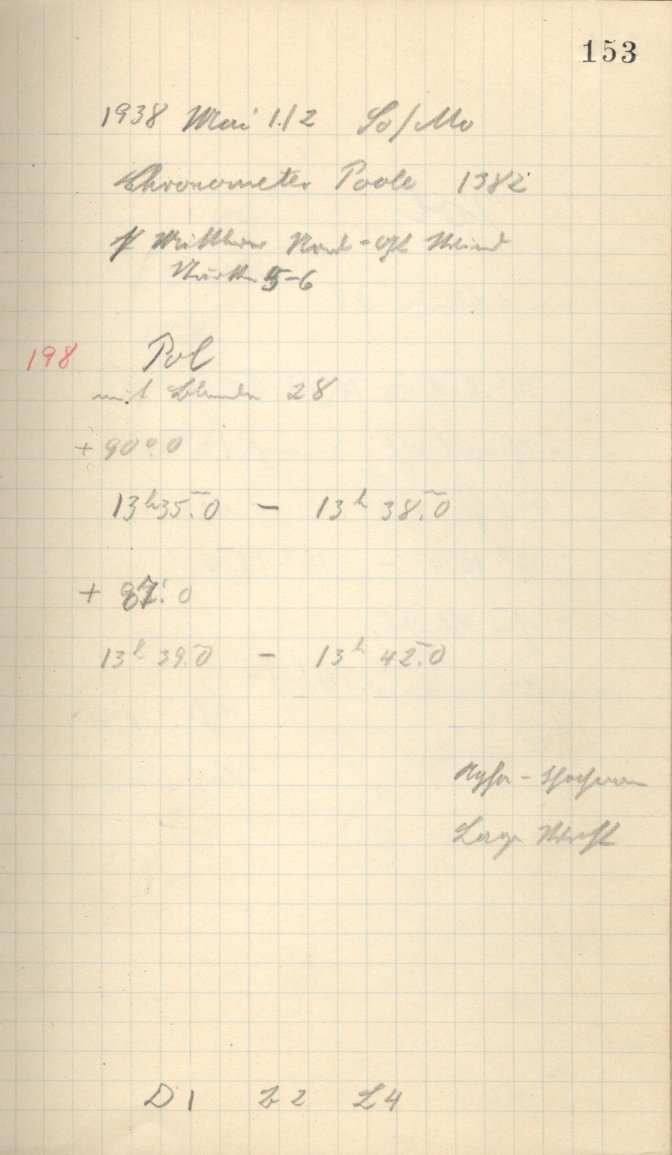 153
1938 Mai 1./2 So/Mo
Chronometer Poole 1382
Nord-Ost Wind
Stärke 5-6
198 Pol
mit Blende 28
+ 90°.0
13h35.m0 — 13h 38.m0
+ 87°.0
13h 39.m0 — 13h 42.m0
Agfa-Isochrom
Lage West
D1 B2 L4